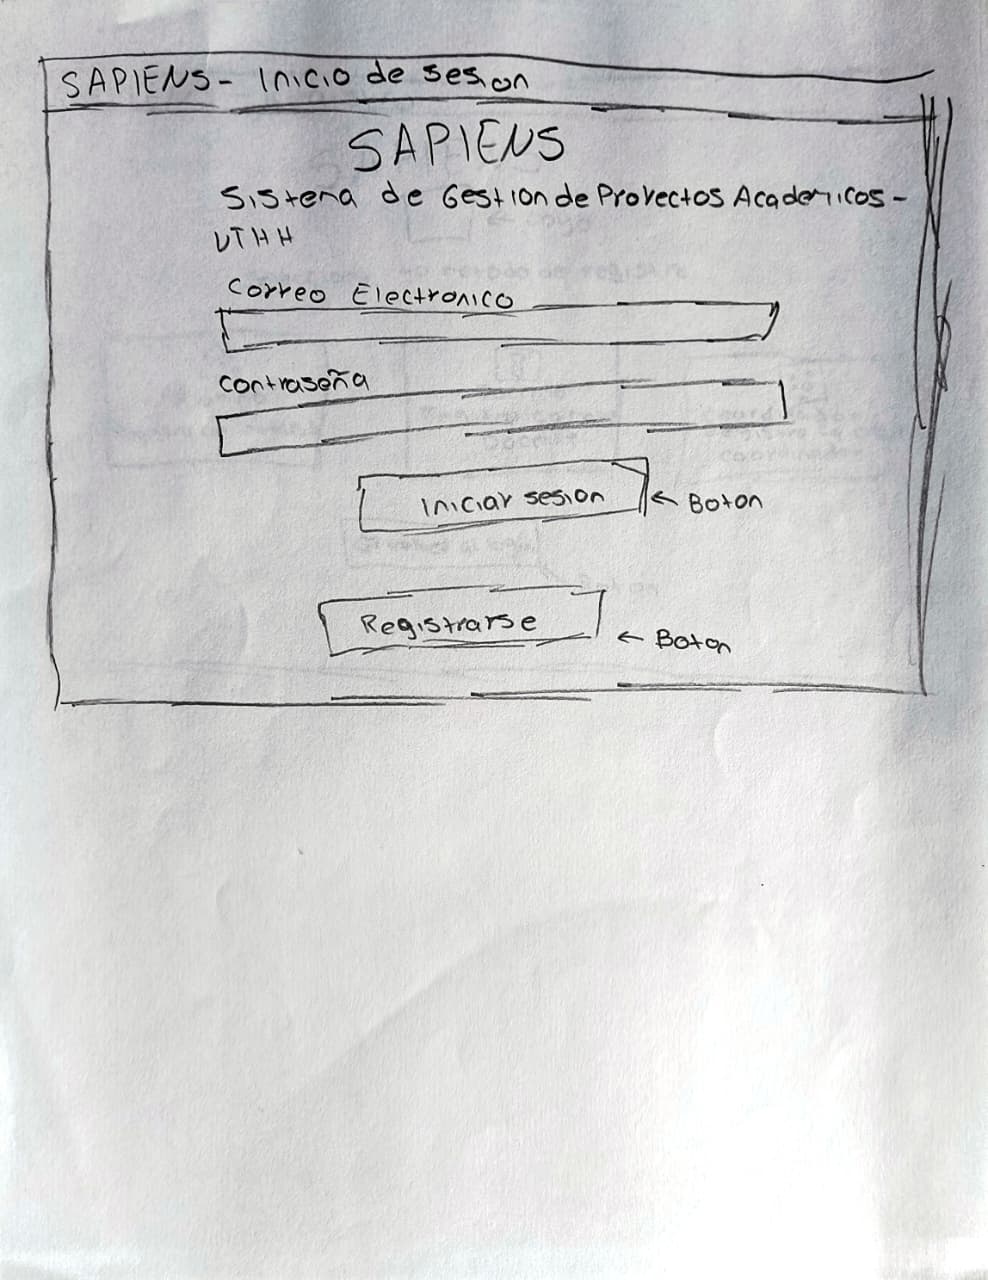 SAPIENS - Inicio de sesion
SAPIENS
Sistema de Gestion de Proyectos Academicos -
UTHH
Correo Electronico
Contraseña
Iniciar sesion
← Boton
Registrarse
← Boton